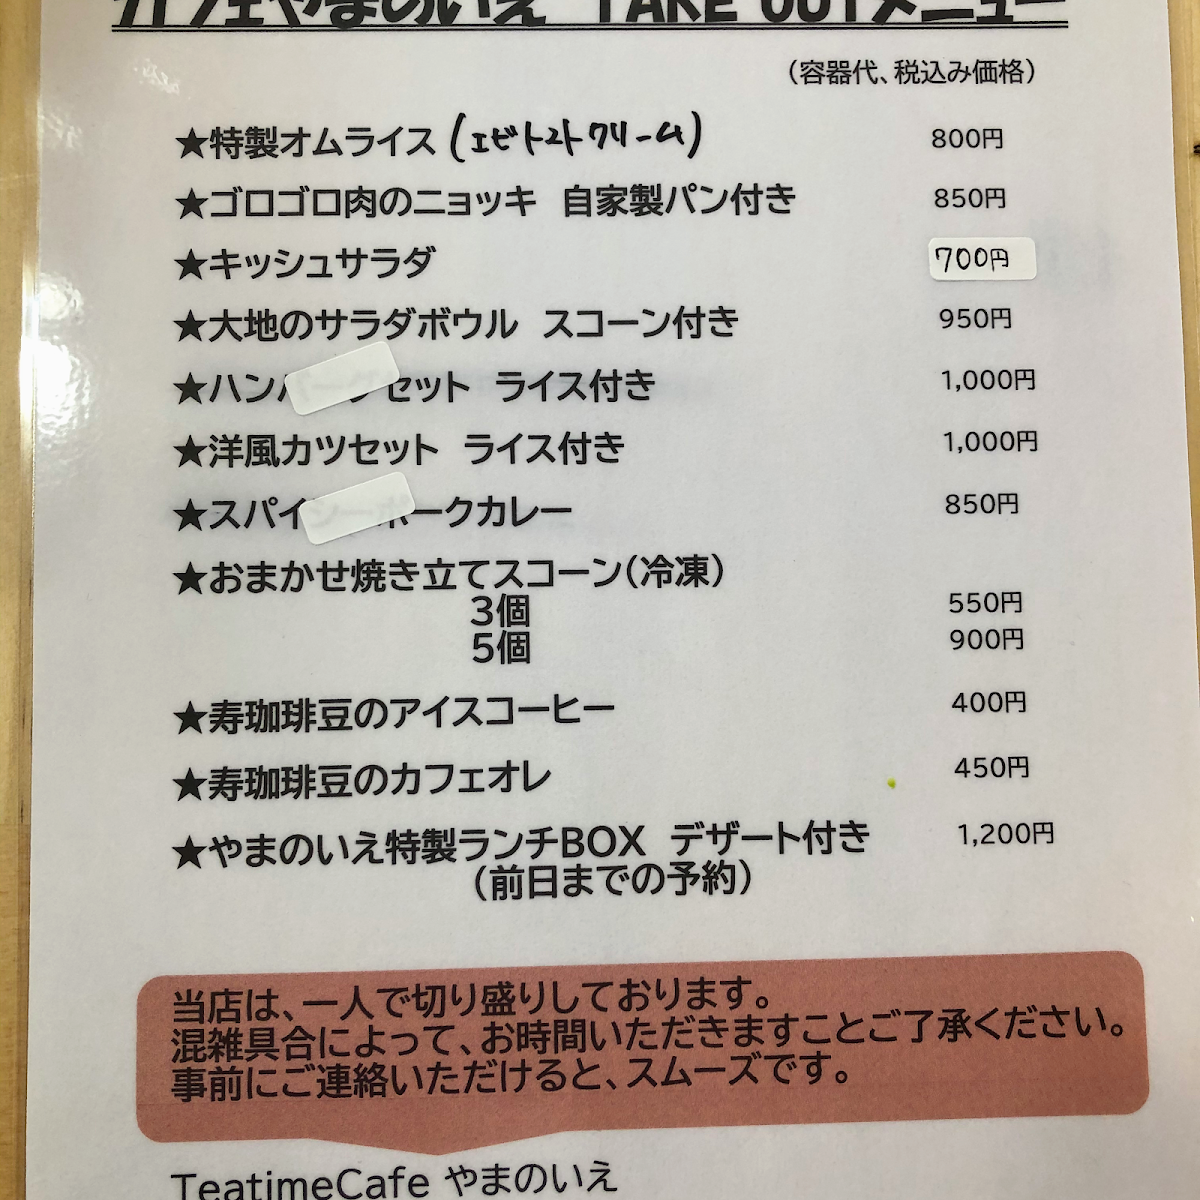 カフェやまのいえ TAKE OUTメニュー
（容器代、税込み価格）
★特製オムライス（エビトマトクリーム） 800円
★ゴロゴロ肉のニョッキ 自家製パン付き 850円
★キッシュサラダ 700円
★大地のサラダボウル スコーン付き 950円
★ハンバーグセット ライス付き 1,000円
★洋風カツセット ライス付き 1,000円
★スパイシーポークカレー 850円
★おまかせ焼き立てスコーン（冷凍）
3個 550円
5個 900円
★寿珈琲豆のアイスコーヒー 400円
★寿珈琲豆のカフェオレ 450円
★やまのいえ特製ランチBOX デザート付き 1,200円
（前日までの予約）
当店は、一人で切り盛りしております。
混雑具合によって、お時間いただきますことご了承ください。
事前にご連絡いただけると、スムーズです。
TeatimeCafe やまのいえ